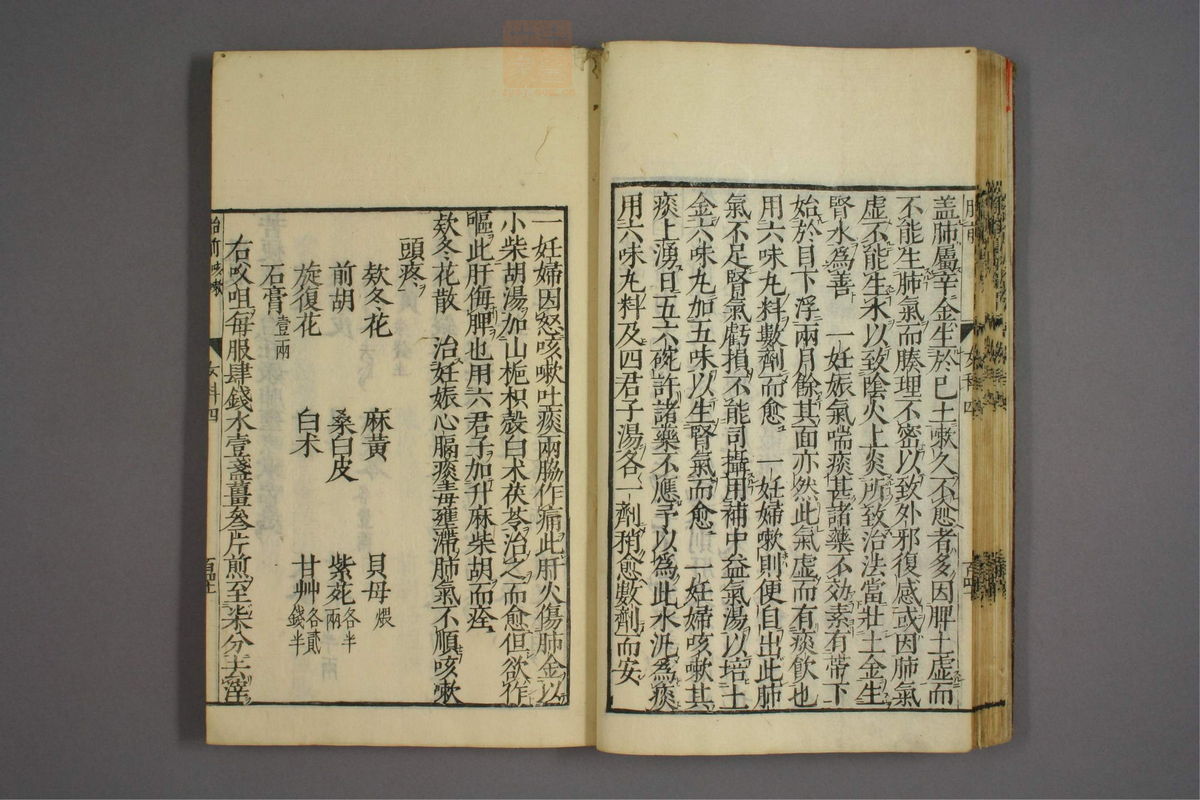 盖肺屬辛金生於已土嗽久不愈者多因脾土虛而
不能生肺氣而腠理不密以致外邪復感或因肺氣
虛不能生水以致陰火上炎所致治法當壯土金生
腎水爲善　一妊娠氣喘痰甚諸藥不効素有帶下
始於目下浮兩月餘其面亦然此氣虛而有痰飲也
用六味丸料數劑而愈　一妊婦嗽則便自出此肺
氣不足腎氣虧損不能司攝用補中益氣湯以培土
金六味丸加五味以生腎氣而愈　一妊婦咳嗽其
痰上湧日五六碗許諸藥不應予以爲此水汎爲痰
用六味丸料及四君子湯各一劑稍愈數劑而安
一妊婦因怒咳嗽吐痰兩脇作痛此肝火傷肺金以
小柴胡湯加山梔枳殼白术茯苓治之而愈但欲作
嘔此肝侮脾也用六君子加升麻柴胡而痊
欵冬花散　治妊娠心膈痰毒壅滯肺氣不順咳嗽
頭疼
欵冬花　麻黃　貝母煨
前胡　桑白皮　紫菀各半兩
旋復花　白术　甘艸各貳錢半
石膏壹兩
右㕮咀每服肆錢水壹盞薑叁片煎至柒分去滓
胎前咳嗽　女科四